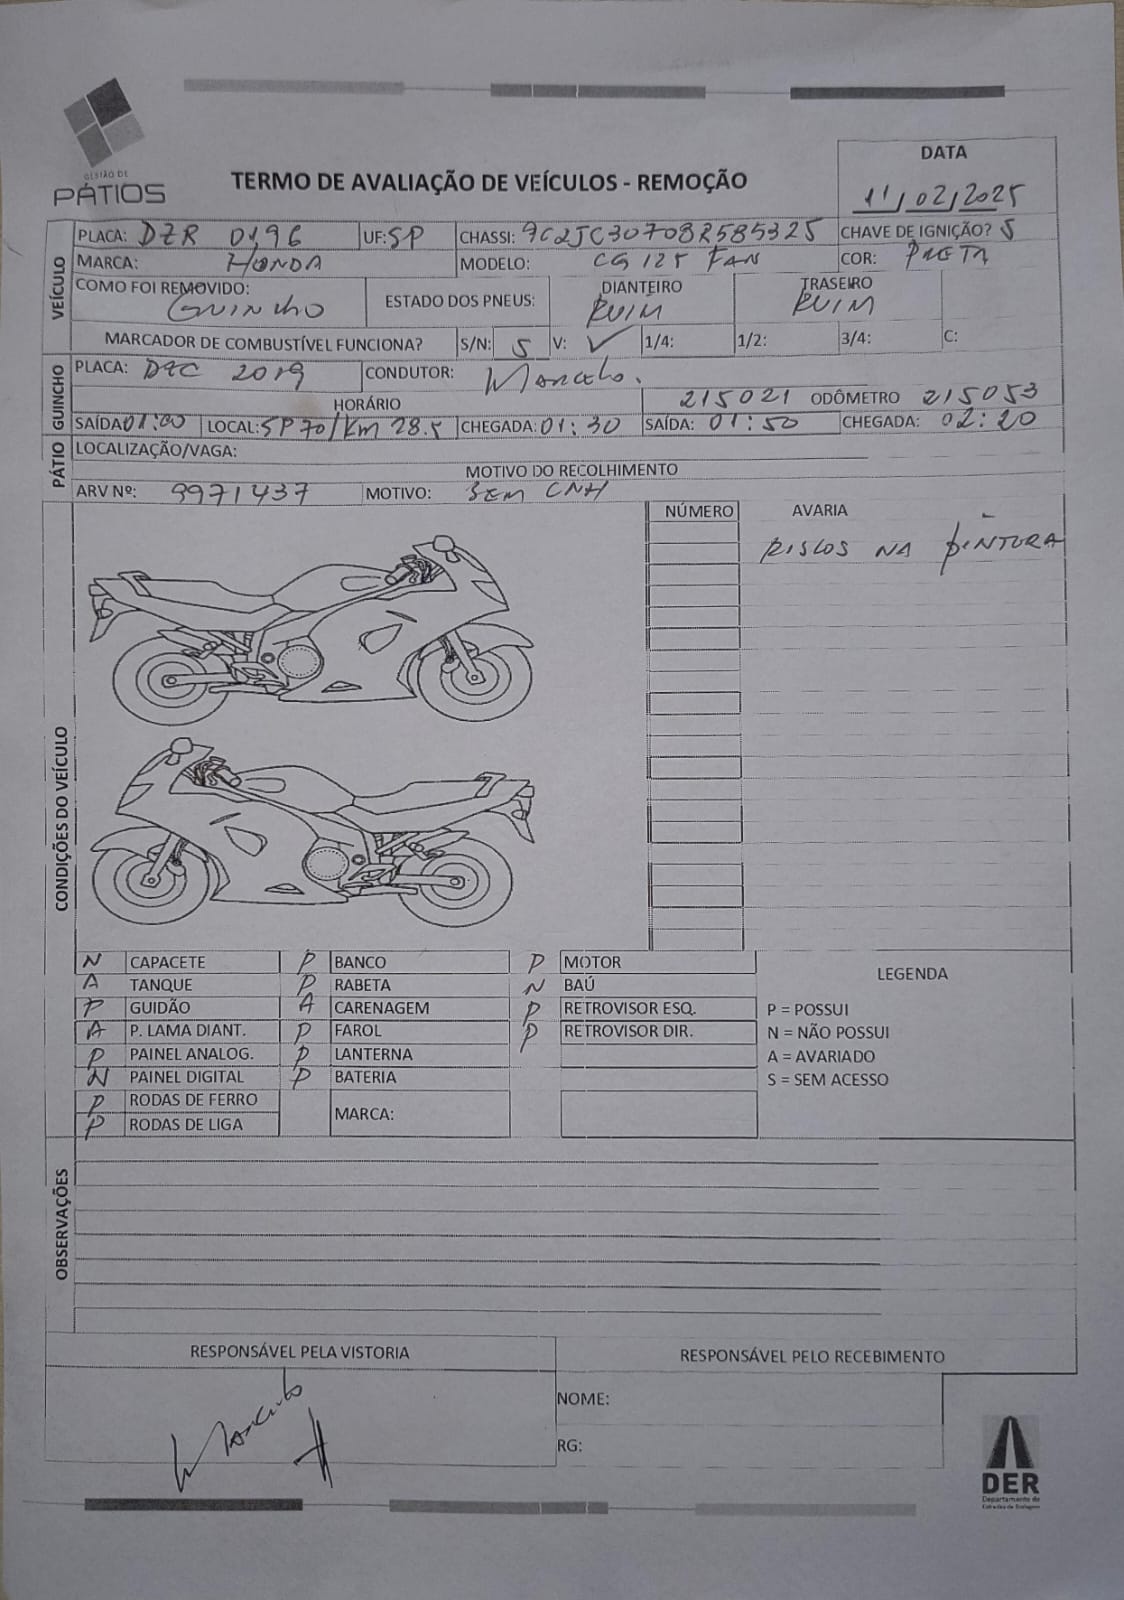 GESTÃO DE
PÁTIOS
TERMO DE AVALIAÇÃO DE VEÍCULOS - REMOÇÃO
DATA
11/02/2025
PLACA: DZR 0196 UF: SP CHASSI: 9C2JC30708R585325 CHAVE DE IGNIÇÃO? S
MARCA: HONDA MODELO: CG 125 FAN COR: PRETA
COMO FOI REMOVIDO: GUINCHO ESTADO DOS PNEUS: DIANTEIRO RUIM TRASEIRO RUIM
MARCADOR DE COMBUSTÍVEL FUNCIONA? S/N: S V: ✓ 1/4: 1/2: 3/4: C:
VEÍCULO
PLACA: 2019 CONDUTOR: Marcelo.
HORÁRIO 215021 ODÔMETRO 215053
SAÍDA 01:00 LOCAL: SP70/Km 28.5 CHEGADA: 01:30 SAÍDA: 01:50 CHEGADA: 02:20
GUINCHO
LOCALIZAÇÃO/VAGA:
MOTIVO DO RECOLHIMENTO
ARV Nº: 9971437 MOTIVO: SEM CNH
PÁTIO
NÚMERO AVARIA
RISCOS NA PINTURA
CONDIÇÕES DO VEÍCULO
N CAPACETE P BANCO P MOTOR
A TANQUE P RABETA N BAÚ
P GUIDÃO A CARENAGEM P RETROVISOR ESQ.
A P. LAMA DIANT. P FAROL P RETROVISOR DIR.
P PAINEL ANALOG. P LANTERNA
N PAINEL DIGITAL P BATERIA
P RODAS DE FERRO MARCA:
P RODAS DE LIGA
LEGENDA
P = POSSUI
N = NÃO POSSUI
A = AVARIADO
S = SEM ACESSO
OBSERVAÇÕES
RESPONSÁVEL PELA VISTORIA
Marcelo
RESPONSÁVEL PELO RECEBIMENTO
NOME:
RG:
DER
Departamento de
Estradas de Rodagem